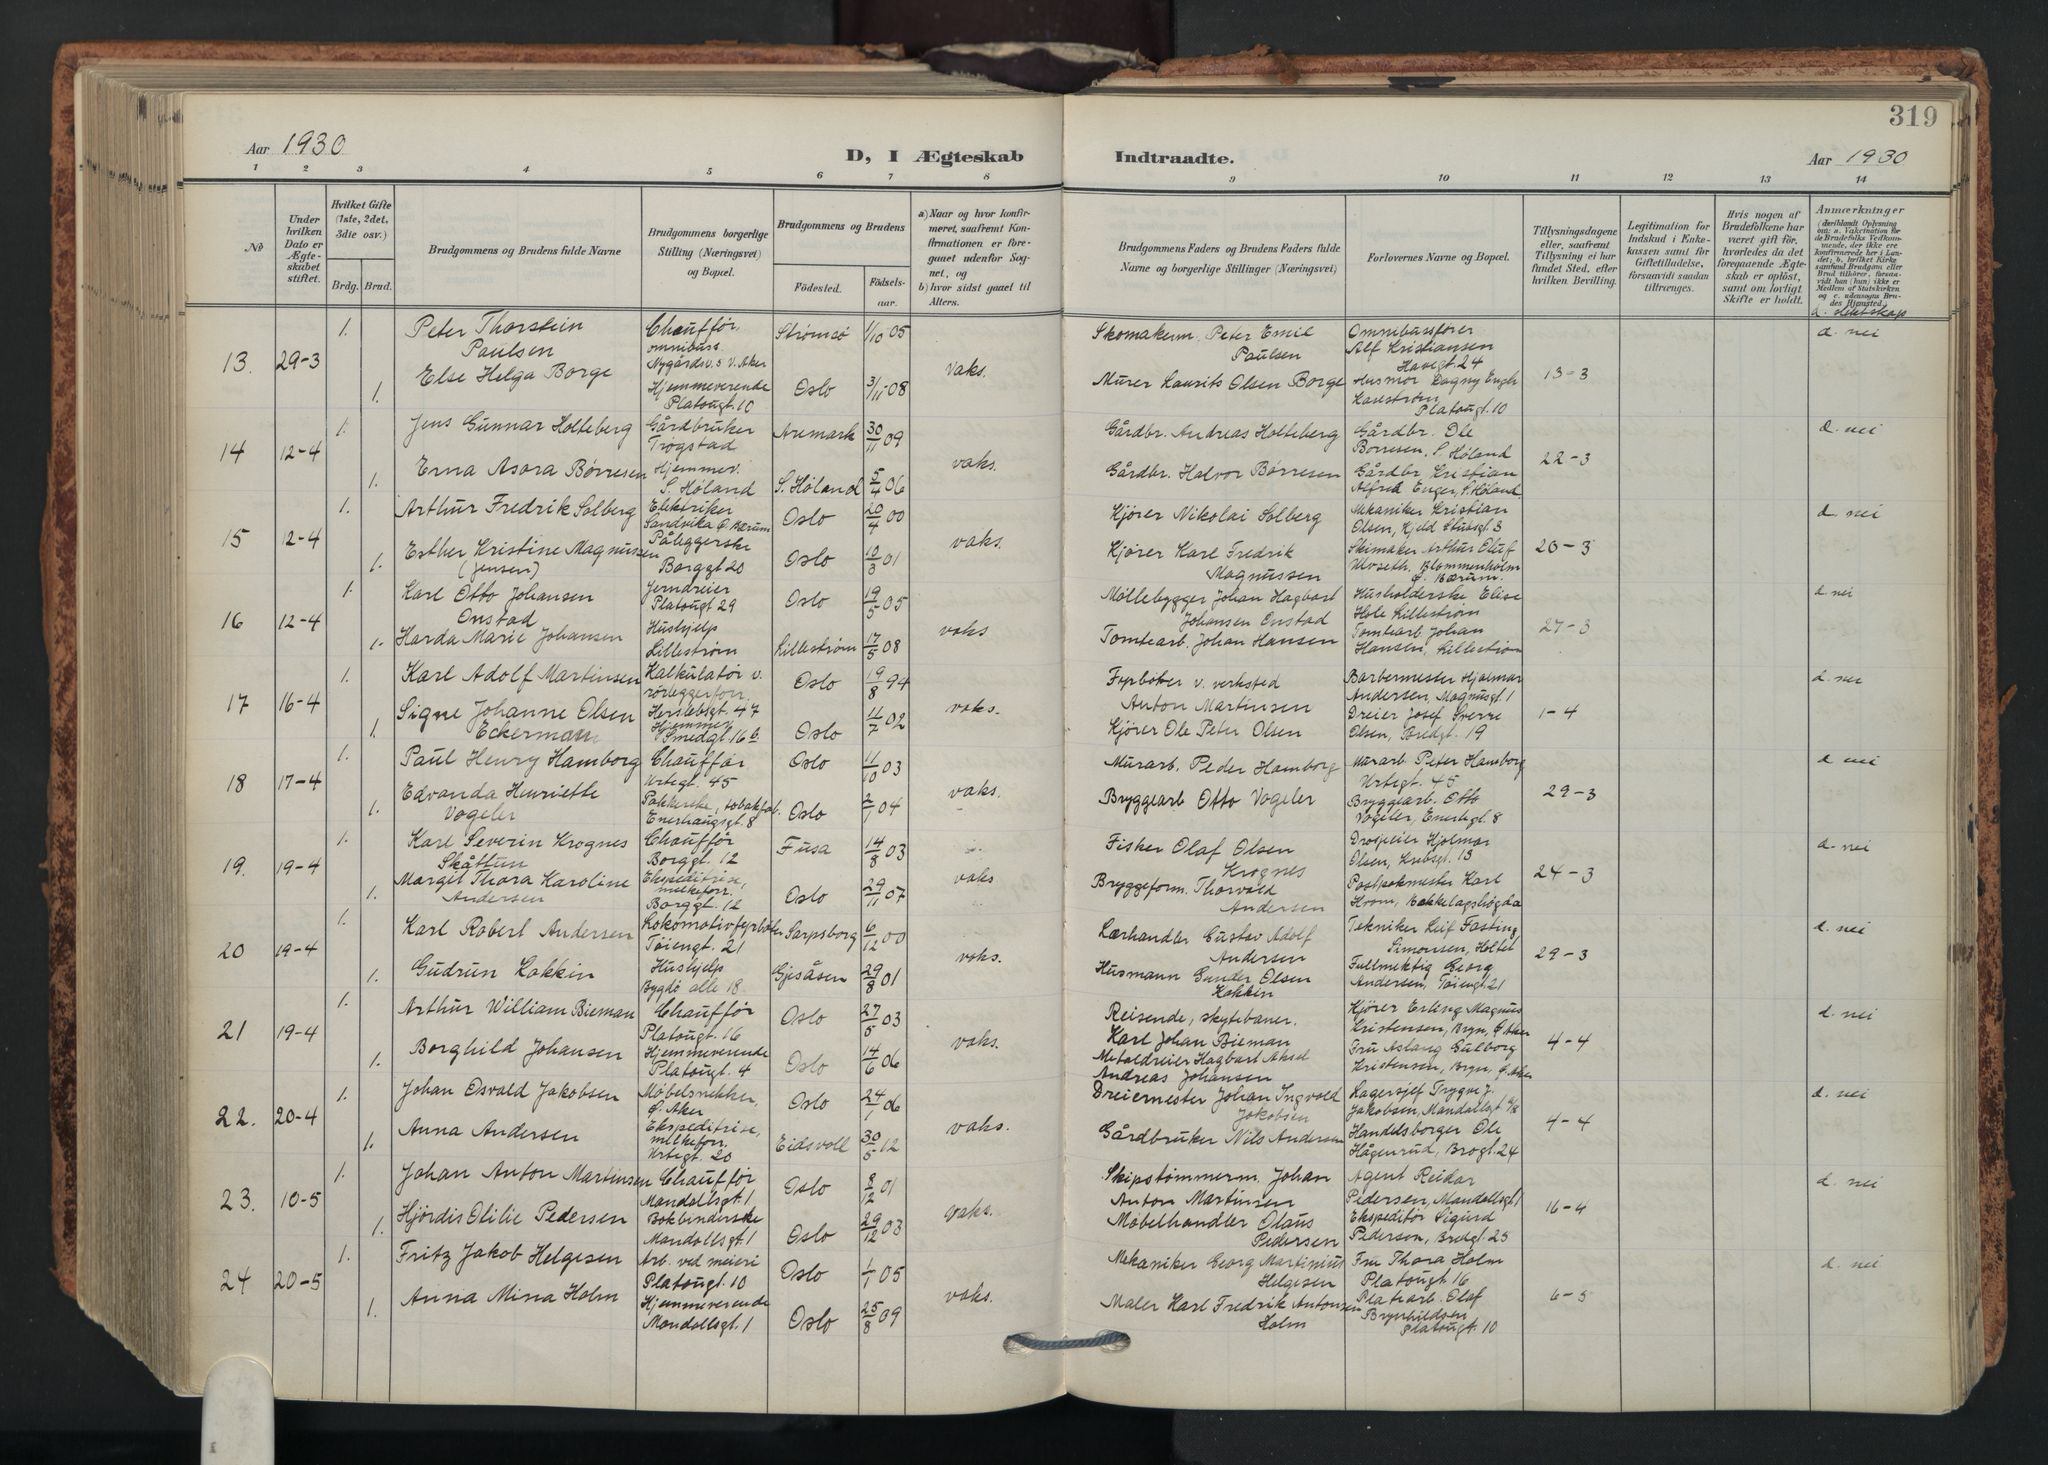 319
Aar 1930 D, I Ægteskab Indtraadte. Aar 1930
1 2 3 4 5 6 7 8 9 10 11 12 13 14
No
Under hvilken Dato er Ægteskabet stiftet.
Hvilket Gifte (1ste, 2det, 3die osv.)
Brdg. Brud.
Brudgommens og Brudens fulde Navne
Brudgommens borgerlige Stilling (Næringsvei) og Bopæl.
Brudgommens og Brudens
Fødested.
Fødselsaar.
a) Naar og hvor konfirmeret, saafremt Konfirmationen er foregaaet udenfor Sognet, og
b) hvor sidst gaaet til Alters.
Brudgommens Faders og Brudens Faders fulde Navne og borgerlige Stillinger (Næringsvei)
Forlovernes Navne og Bopæl.
Tillysningsdagene eller, saafremt Tillysning ei har fundet Sted, efter hvilken Bevilling.
Legitimation for Indskud i Enkekassen samt for Giftetilladelse, forsaavidt saadan tiltrænges.
Hvis nogen af Brudefolkene har været gift før, hvorledes da det foregaaende Ægteskab er opløst, samt om lovligt Skifte er holdt.
Anmærkninger
(deriblandt Oplysning om: a. Vakcination for de Brudefolks Vedkommende, der ikke ere konfirmerede her i Landet; b. hvilket Kirkesamfund Brudgom eller Brud tilhører, forsaavidt han (hun) ikke er Medlem af Statskirken og c. udensogns Brudes Hjemsted.
d. slektskap
13. 29-3 1. Peter Thorstein Paulsen
Chauffør omnibuss. Nygårdsv. 5 V. Aker
Strømsø 1/10 05
Skomakerm. Peter Emil Paulsen
Omnibussfører Alf Kristiansen Havegt. 24
d. nei
1. Else Helga Borge
Hjemmeverende Platougt. 10
Oslo 3/11 08 vaks.
Murer Laurits Olsen Borge
Husmor Dagny Engh Karlstrøm, Platougt. 10
13-3
14 12-4 1. Jens Gunnar Holteberg
Gårdbruker Trøgstad
Aremark 30/11 09
Gårdbr. Andreas Holteberg
Gårdbr. Ole Børresen, S. Høland
d. nei
1. Erna Asora Børresen
Hjemmev. S. Høland
S. Høland 5/4 06 vaks.
Gårdbr. Halvor Børresen
Gårdbr. Kristian Alfred Enger, S. Høland
22-3
15 12-4 1. Arthur Fredrik Solberg
Elektriker Sandvika Ø. Bærum
Oslo 20/4 00
Kjører Nikolai Solberg
Mekaniker Kristian Olsen, Kjeld Stubsgt. 3
d. nei
1. Esther Kristine Magnussen (Jensen)
Påleggerske Borggt 20
Oslo 10/3 01 vaks.
Kjører Karl Fredrik Magnussen
Skimaker Arthur Oluf Ulvseth, Blommenholm Ø. Bærum.
20-3
16 12-4 1. Karl Otto Johansen Onstad
Jerndreier Platougt 29
Oslo 19/5 05
Møllebygger Johan Hagbart Johansen Onstad
Husholderske Elise Hole Lillestrøm
d nei
1. Harda Marie Johansen
Hushjelp Lillestrøm
Lillestrøm 17/5 08 vaks
Tomtearb. Johan Hansen
Tomtearb Johan Hansen, Lillestrøm
27-3
17 16-4 1. Karl Adolf Martinsen
Kalkulatør v. rørleggerforr. Herslebsgt 47
Oslo 19/8 94
Fyrbøter v. verksted Anton Martinsen
Barbermester Hjalmar Andersen, Magnusgt. 1
d. nei
1. Signe Johanne Olsen Eckermann
Hjemmev Smedgt. 16 b
Oslo 11/7 02 vaks.
Kjører Ole Peter Olsen
Dreier Josef Sverre Olsen, Bredgt. 19
1-4
18 17-4 1. Paul Henry Hamborg
Chauffør Urtegt. 45
Oslo 11/10 03
Murarb. Peder Hamborg
Murarb Peter Hamborg Urtegt. 45
d nei
1. Edvanda Henriette Vogeler
Pakkerske, tobakfab. Enerhaugsgt 8
Oslo 2/1 04 vaks.
Bryggearb Otto Vogeler
Bryggearb. Otto Vogeler, Enerhgt 8
29-3
19. 19-4 1. Karl Severin Krognes Skåttun
Chauffør Borggt. 12
Fusa 14/8 03
Fisker Olaf Olsen Krognes
Drosjeeier Hjalmar Olsen, Krebsgt. 13
d. nei
1. Margit Thora Karoline Andersen
Ekspeditrise, melkeforr. Borggt. 12
Oslo 29/11 07 vaks
Bryggeform. Thorvald Andersen
Postpakmester Karl Hrom, Bekkelagshøgda
24-3
20 19-4 1. Karl Robert Andersen
Lokomotivfyrbøter Tøiengt. 21
Sarpsborg 6/12 00
Lærhandler Gustav Adolf Andersen
Tekniker Leif Fasting Simonsen, Holtet
d. nei
1. Gudrun Kokkin
Hushjelp Bygdø alle 18
Gjesåsen 29/8 01 vaks.
Husmann Gunder Olsen Kokkin
Fullmektig Georg Andersen, Tøiengt. 21
29-3
21 19-4 1. Arthur William Bieman
Chauffør Platougt. 16
Oslo 27/5 03
Reisende, skytebaner. Karl Johan Bieman
Kjører Erling Magnus Kristensen, Bryn, Ø. Aker
d. nei
1. Borghild Johansen
Hjemmeverende Platougt. 4
Oslo 14/6 06 vaks.
Metaldreier Hagbart Aksel Andreas Johansen
Fru Aslaug Gulborg Kristensen, Bryn, Ø. Aker
4-4
22. 20-4 1. Johan Osvald Jakobsen
Møbelsnekker, Ø. Aker
Oslo 24/1 06
Dreiermester Johan Ingvald Jakobsen
Lagersjef Trygve J. Jakobsen, Mandallsgt 6/8
d. nei
1. Anna Andersen
Ekspeditrise, melkeforr. Urtegt. 20
Eidsvoll 30/5 12 vaks.
Gårdbruker Nils Andersen
Handelsborger Ole Hågenrud, Brogt. 24
4-4
23. 10-5 1. Johan Anton Martinsen
Chauffør Mandallsgt. 1
Oslo 8/12 01
Skipstømmerm. Johan Anton Martinsen
Agent Reidar Pedersen, Mandallsgt 1
d. nei
1. Hjørdis Otilie Pedersen
Bokbinderske Mandallsgt. 1
Oslo 29/12 03 vaks.
Møbelhandler Olaus Pedersen
Ekspeditør Sigurd Pedersen, Bredgt. 25
16-4
24 20-5 1. Fritz Jakob Helgesen
Arb. ved meieri Platougt. 10
Oslo 1/1 05
Mekaniker Georg Martinius Helgesen
Fru Thora Holm Platougt. 16
d. nei
1. Anna Mina Holm
Hjemmeverende Mandallsgt. 1
Oslo 25/8 09 vaks.
Maler Karl Fredrik Antonsen Holm
Platearb. Olaf Brynhildsen Platougt. 10
6-5